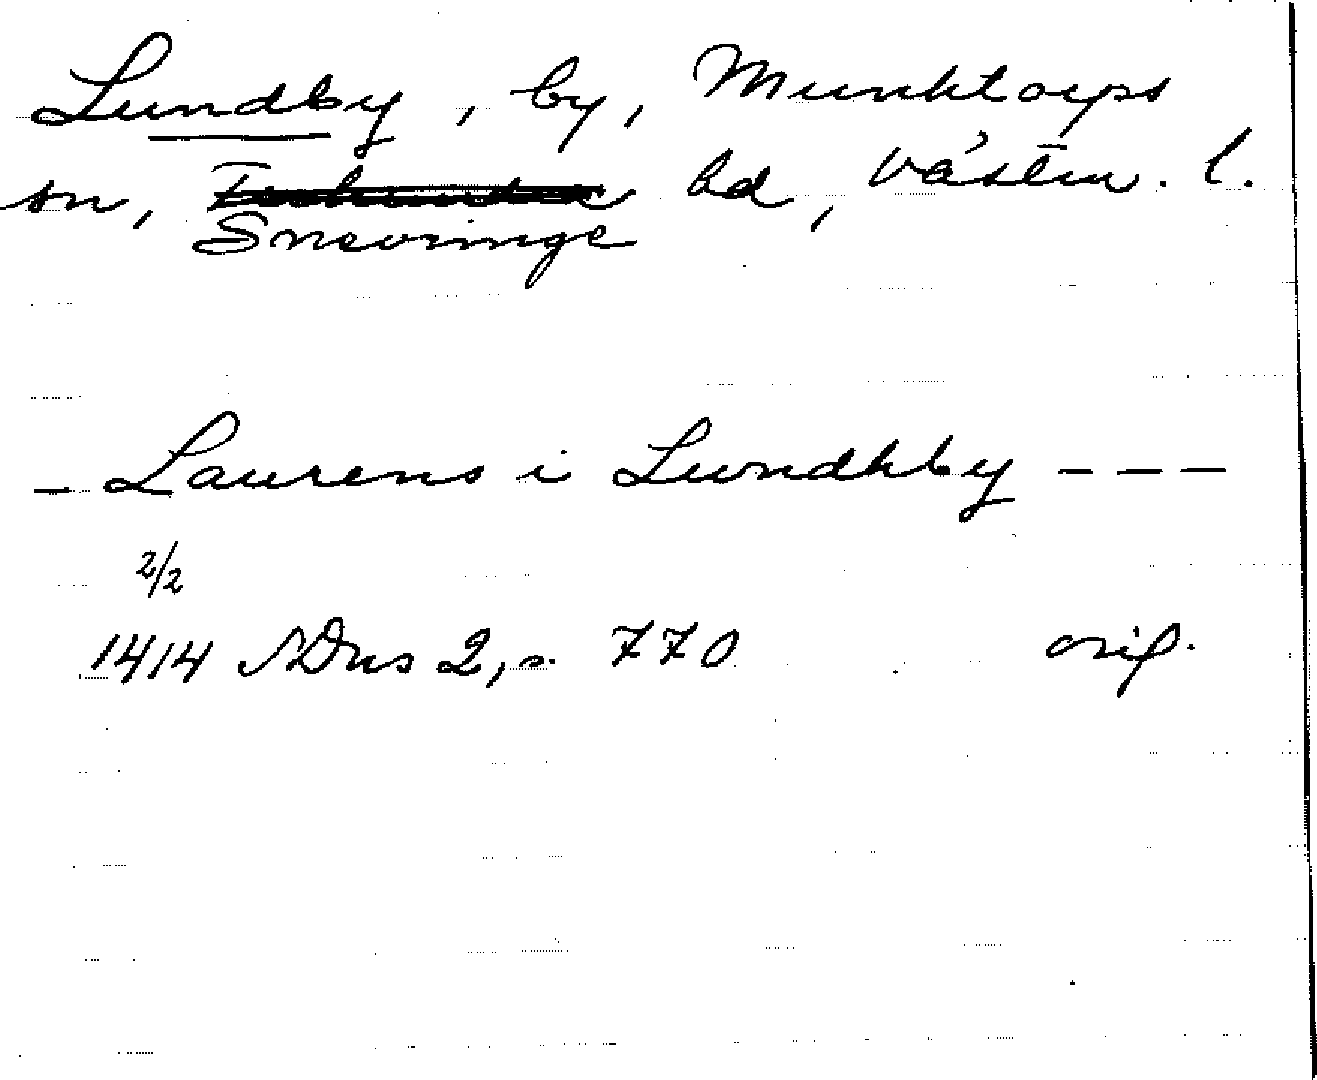 Lundby, by, Munktorps
sn, hd, Västm. l.
Snevringe
– Laurens i Lundhby – – –
2/2
1414 SDns 2, s. 770 orig.